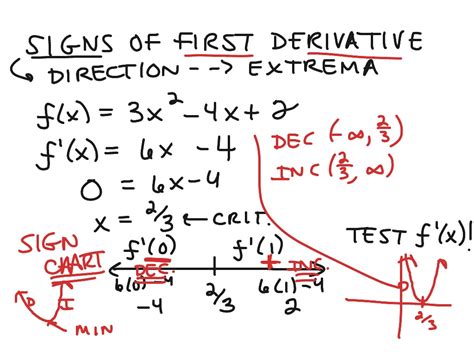 SIGNS OF FIRST DERIVATIVE
DIRECTION --> EXTREMA
f(x) = 3x² - 4x + 2
f'(x) = 6x - 4
0 = 6x - 4
x = 2/3 ← CRIT.
DEC (-∞, 2/3)
INC (2/3, ∞)
SIGN CHART
f'(0) f'(1)
DEC. + INC.
6(0) - 4 2/3 6(1) - 4
-4 2
D I
MIN
TEST f'(x)!
2/3